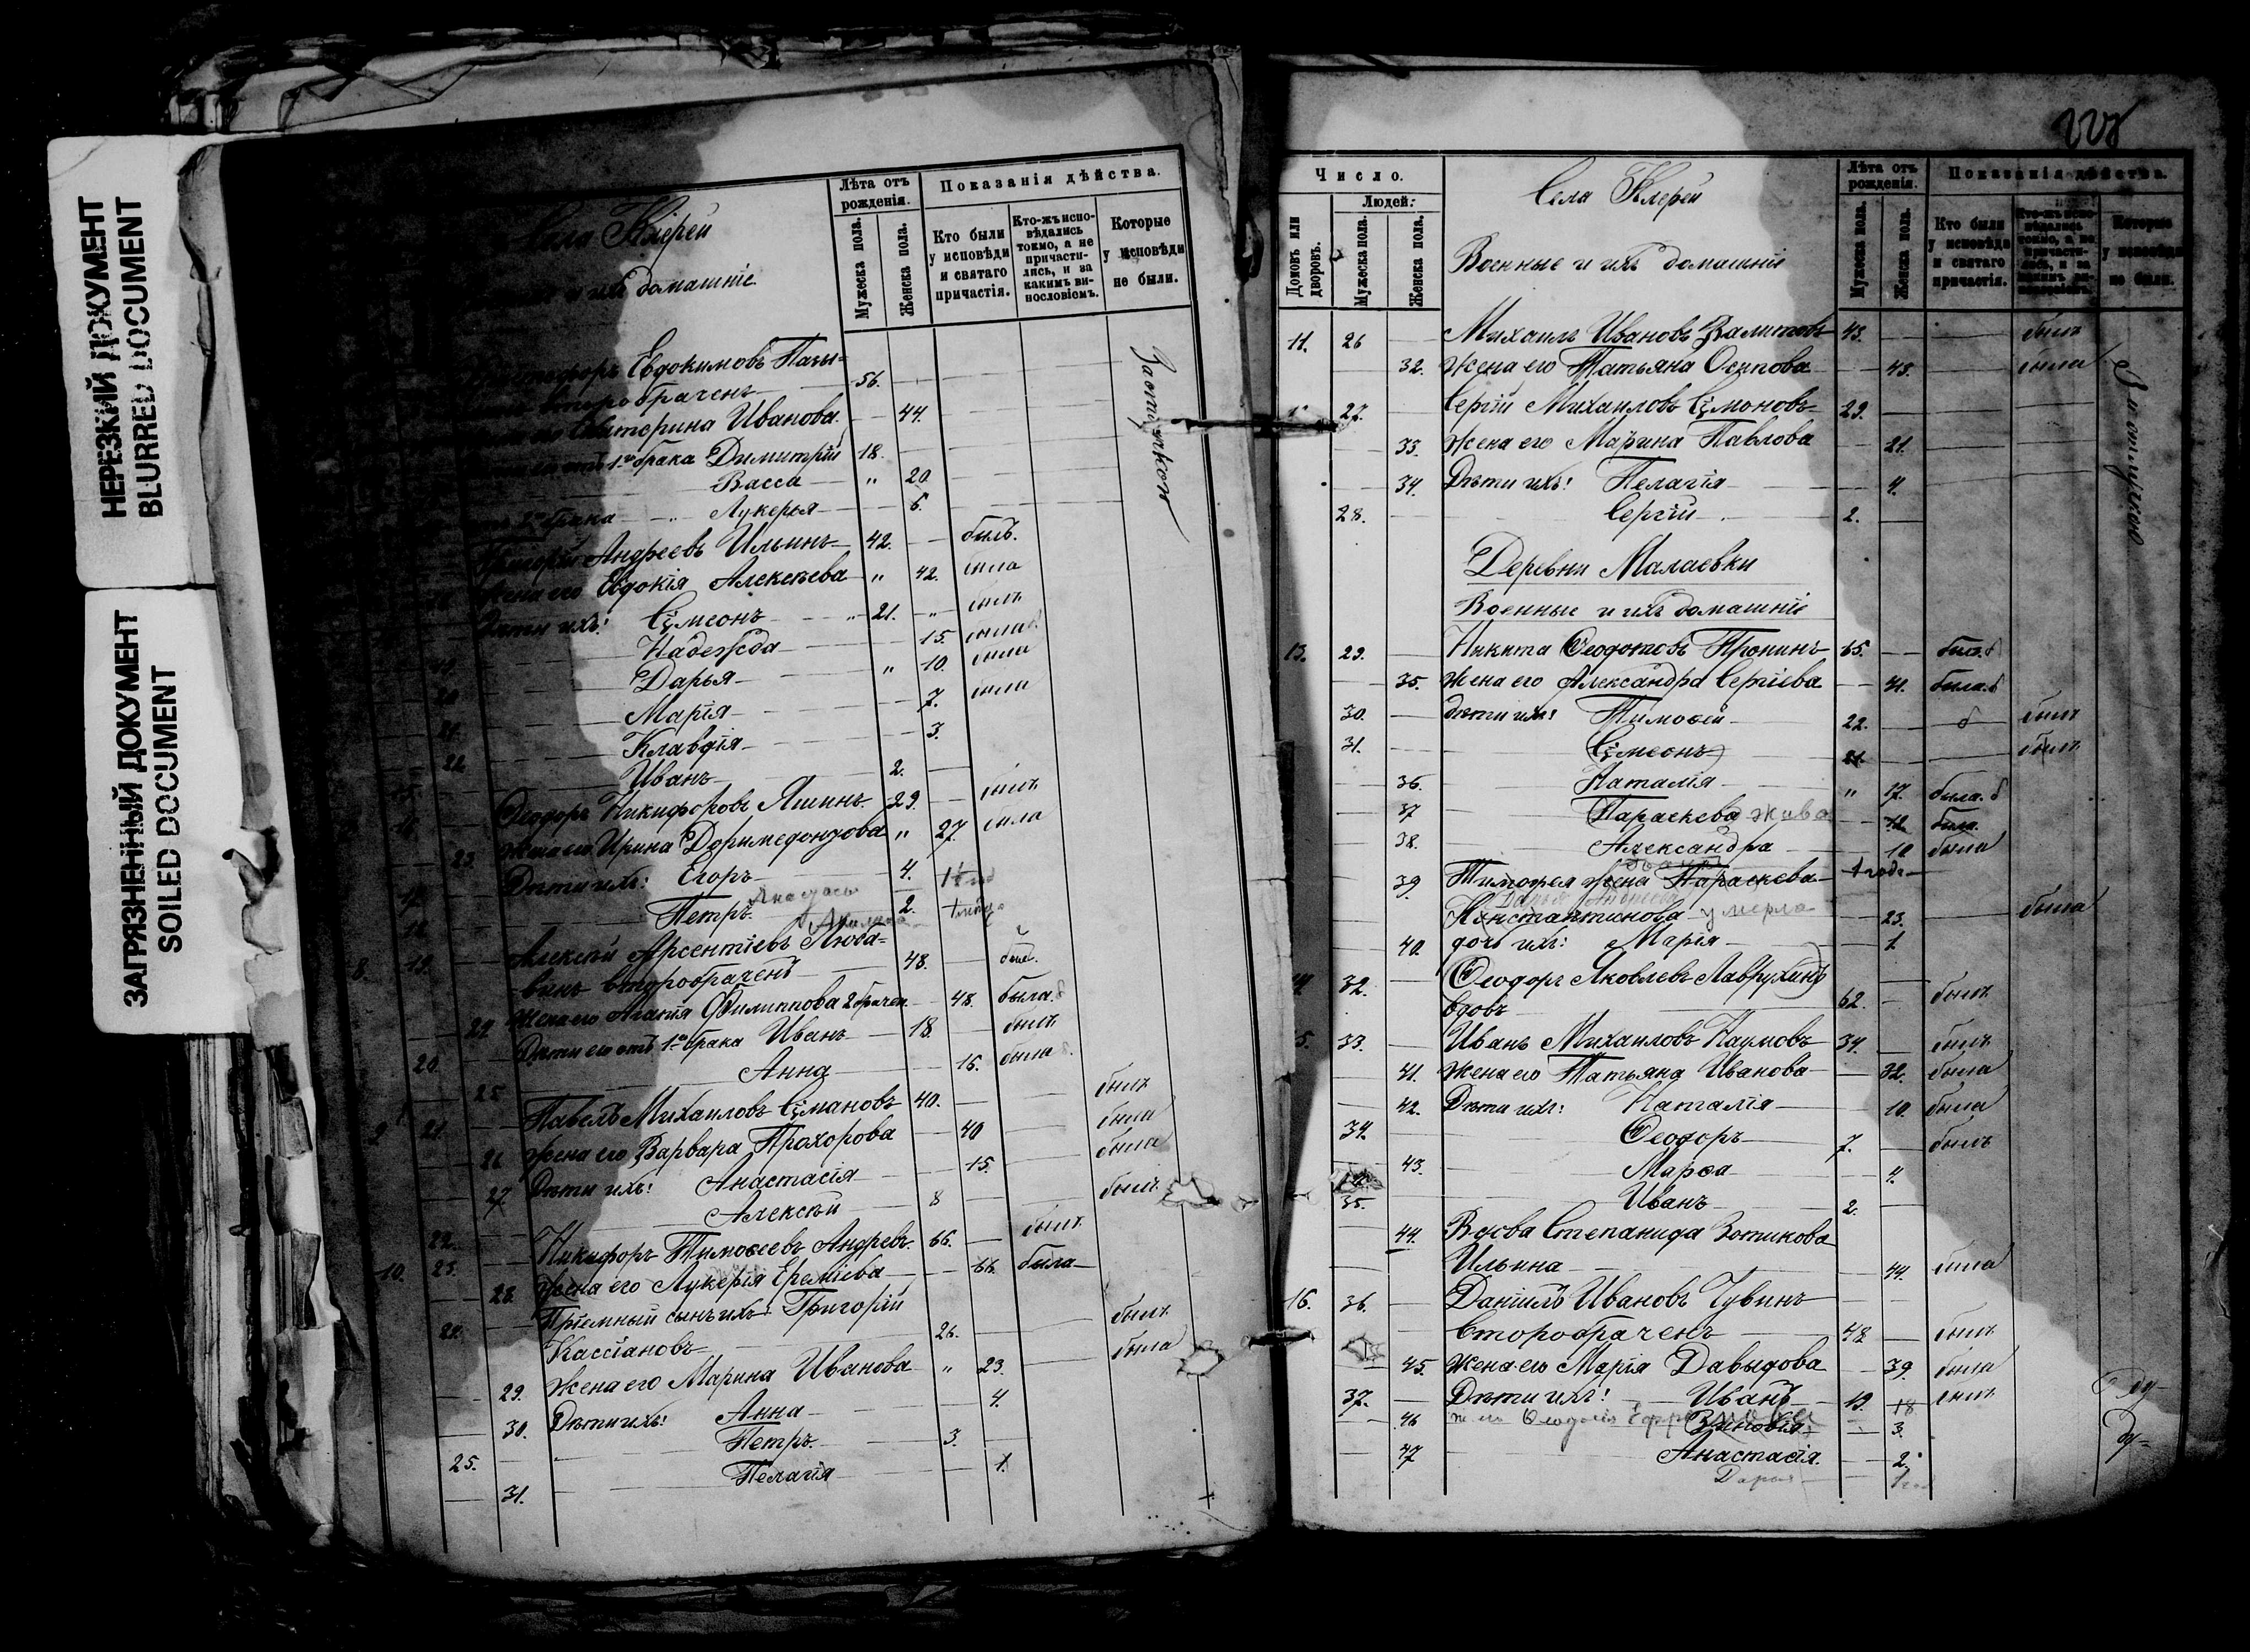 НЕРЕЗКИЙ ДОКУМЕНТ
BLURRED DOCUMENT
ЗАГРЯЗНЕННЫЙ ДОКУМЕНТ
SOILED DOCUMENT
Лѣта отъ рожденія.
Показанія дѣйства.
Мужеска пола.
Женска пола.
Кто были у исповѣди и святаго причастія.
Кто-жъ исповѣдались токмо, а не причастились, и за какимъ винословіемъ.
Которые у исповѣди не были.
и ихъ домашніе.
Евдокимовъ
56.
Екатерина Иванова 44.
1го брака Димитрій 18.
Васса " 20
брака " Лукерья 6.
Григорій Андреевъ Ильинъ 42. былъ.
Жена его Евдокія Алексѣева " 42. была
Дѣти ихъ: Сѵмеонъ 21. " былъ
Надежда 15. была
Дарья " 10. была
Марія 7. была
22 Клавдія 3.
Иванъ 2.
Ѳеодоръ Никифоровъ Яшинъ 29. былъ
23 Жена его Ирина Доримедонтова " 27. была
Дѣти ихъ: Егоръ 4.
Петръ 2.
8. 19. Алексѣй Арсентіевъ
второбраченъ 48.
Жена его Агапія Филиппова 2 брачен. 48. была
20 Дѣти его отъ 1го брака Иванъ 18. былъ
25 Анна 16. была
9 21. Павелъ Михаиловъ Сѵмановъ 40. былъ
26 Жена его Варвара Прохорова 40 была
27 Дѣти ихъ: Анастасія 15. была
22. Алексѣй 8 былъ
10. 23. Никифоръ Тимоѳеевъ Андреевъ 66. былъ
28. Жена его Лукерія Еремѣева 66. была
24. Пріемный сынъ ихъ: Григорій
Кассіановъ 26. былъ
29. Жена его Марина Иванова " 23. была
30. Дѣти ихъ: Анна 4.
25. Петръ 3.
31. Пелагія 1.
Число.
Людей:
Домовъ или дворовъ.
Мужеска пола.
Женска пола.
Села Клерей
Военные и ихъ домашніе
Лѣта отъ рожденія.
Показанія дѣйства.
Мужеска пола.
Женска пола.
Кто были у исповѣди и святаго причастія.
Которые у исповѣди не были.
11. 26 Михаилъ Ивановъ Валитовъ 43. былъ
32. Жена его Татьяна Осипова 43. была
27. Сергій Михаиловъ Сѵмоновъ 29.
33. Жена его Марина Павлова 21.
34. Дѣти ихъ: Пелагія 4.
28. Сергій 2.
Деревни Малаевки
Военные и ихъ домашніе
13. 29. Никита Ѳеодотовъ Пронинъ 65. былъ
35. Жена его Александра Сергіева 41. была
30. Дѣти ихъ: Тимоѳей 22. былъ
31. Сѵмеонъ 21. былъ
36. Наталія " 17. была
37 Параскева жива 12 была
38. Александра 10 была
39 Тимофея жена Параскева
Константинова умерла 23. была
40. дочь ихъ: Марія 1.
32. Ѳеодоръ Яковлевъ Лаврухинъ
вдовъ 62. былъ
33. Иванъ Михаиловъ Наумовъ 34. былъ
41. Жена его Татьяна Иванова 32. была
42. Дѣти ихъ: Наталія 10. была
34. Ѳеодоръ 7. былъ
43. Марѳа 4.
35. Иванъ 2.
44. Вдова Степанида Зотикова
Ильина 44. была
16. 36. Даніилъ Ивановъ Чувинъ
второбраченъ 48 былъ
45. Жена его Марія Давыдова 39. была
37. Дѣти ихъ: Иванъ 19. 18 былъ
46 Зиновія 3.
47 Анастасія. 2.
Дарья